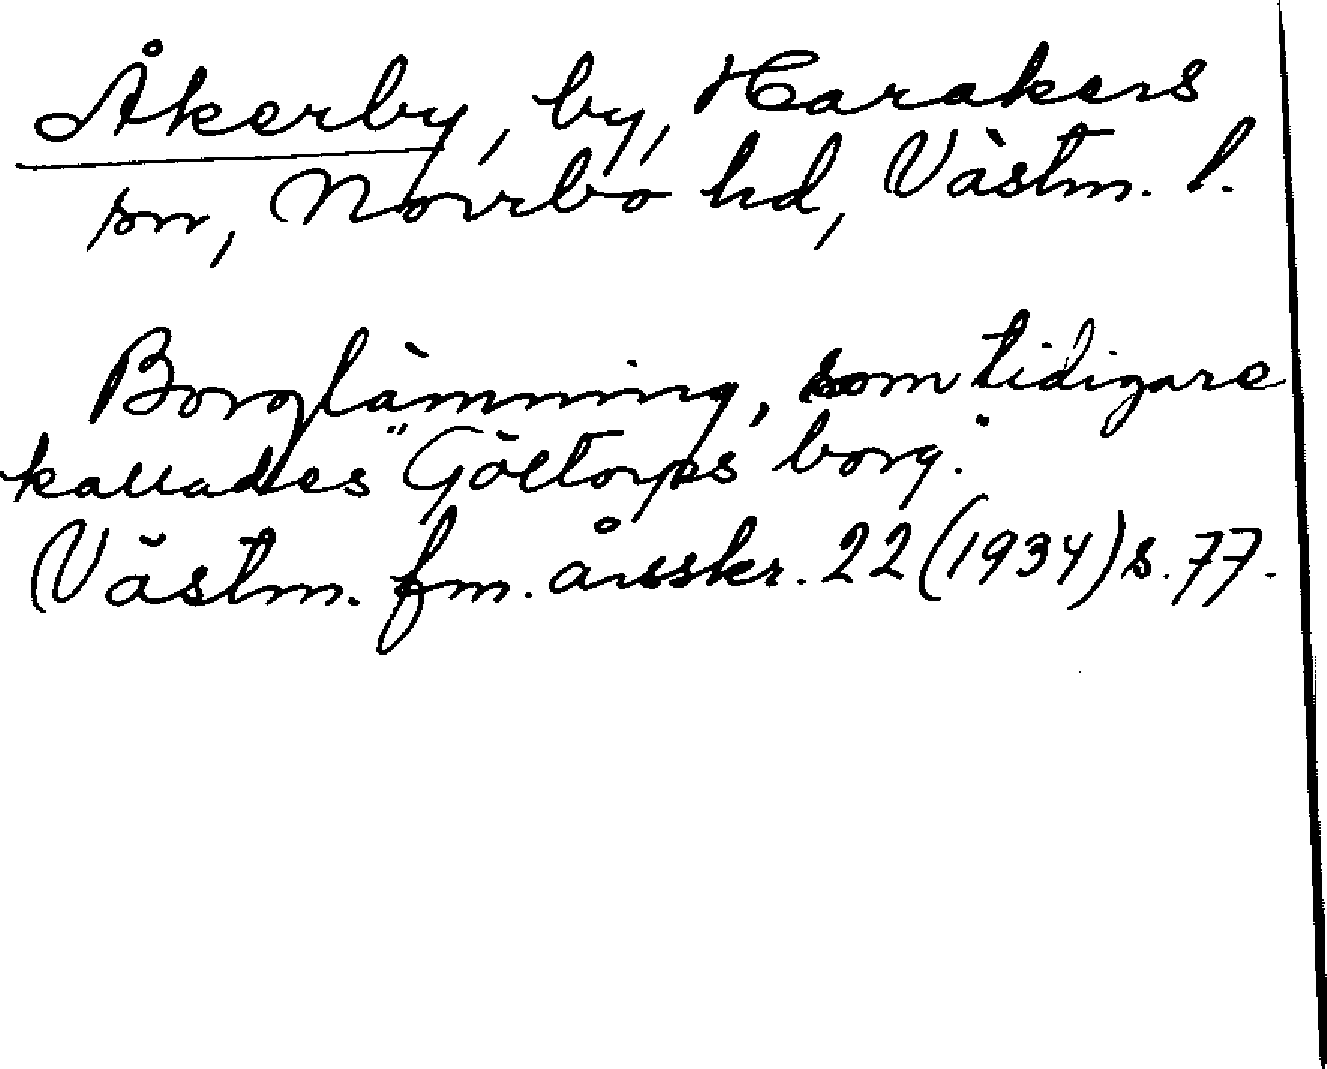 Åkerby, by, Harakers
sn, Norrbo hd, Västm. l.
Borglämning, som tidigare
kallades "Göltorps borg."
Västm. fm. årsskr. 22 (1934) s. 77.